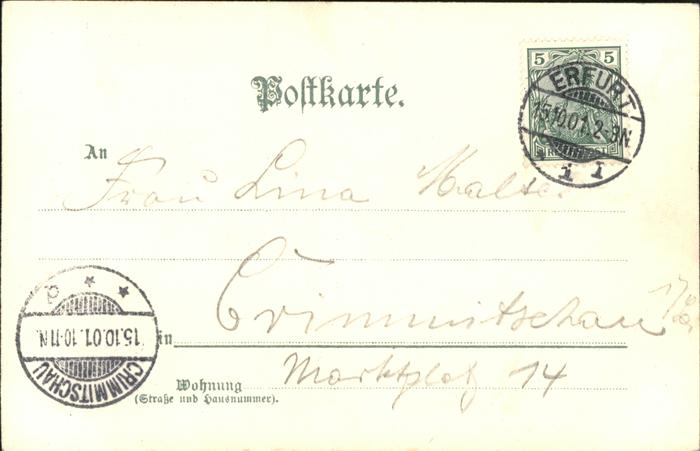 5 5
Postkarte.
ERFURT
15.10.01.2-3N.
1 1
An
Frau Lina
Crimmitschau
in
Marktplatz 14
Wohnung
(Straße und Hausnummer).
15.10.01.10-11N.
CRIMMITSCHAU